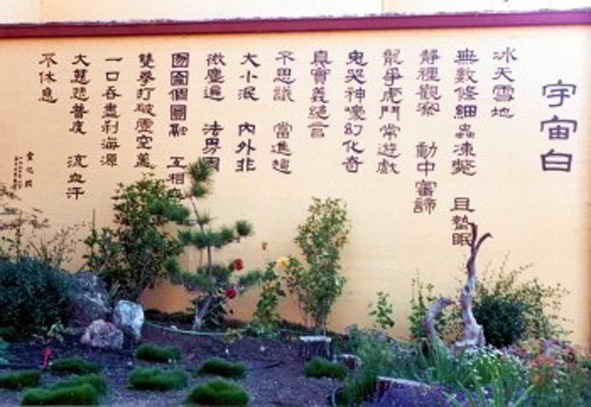 宇宙白
冰天雪地
無數條細蟲凍斃 且蟄眠
靜裡觀察 動中審諦
龍爭虎鬥常遊戲
鬼哭神嚎幻化奇
真實義絕言
不思議 當進趨
大小泯 內外非
微塵遍 法界周
囫圇個圓融 互相
雙拳打破虛空蓋
一口吞盡剎海源
大慈悲普度 流血汗
不休息
宣化